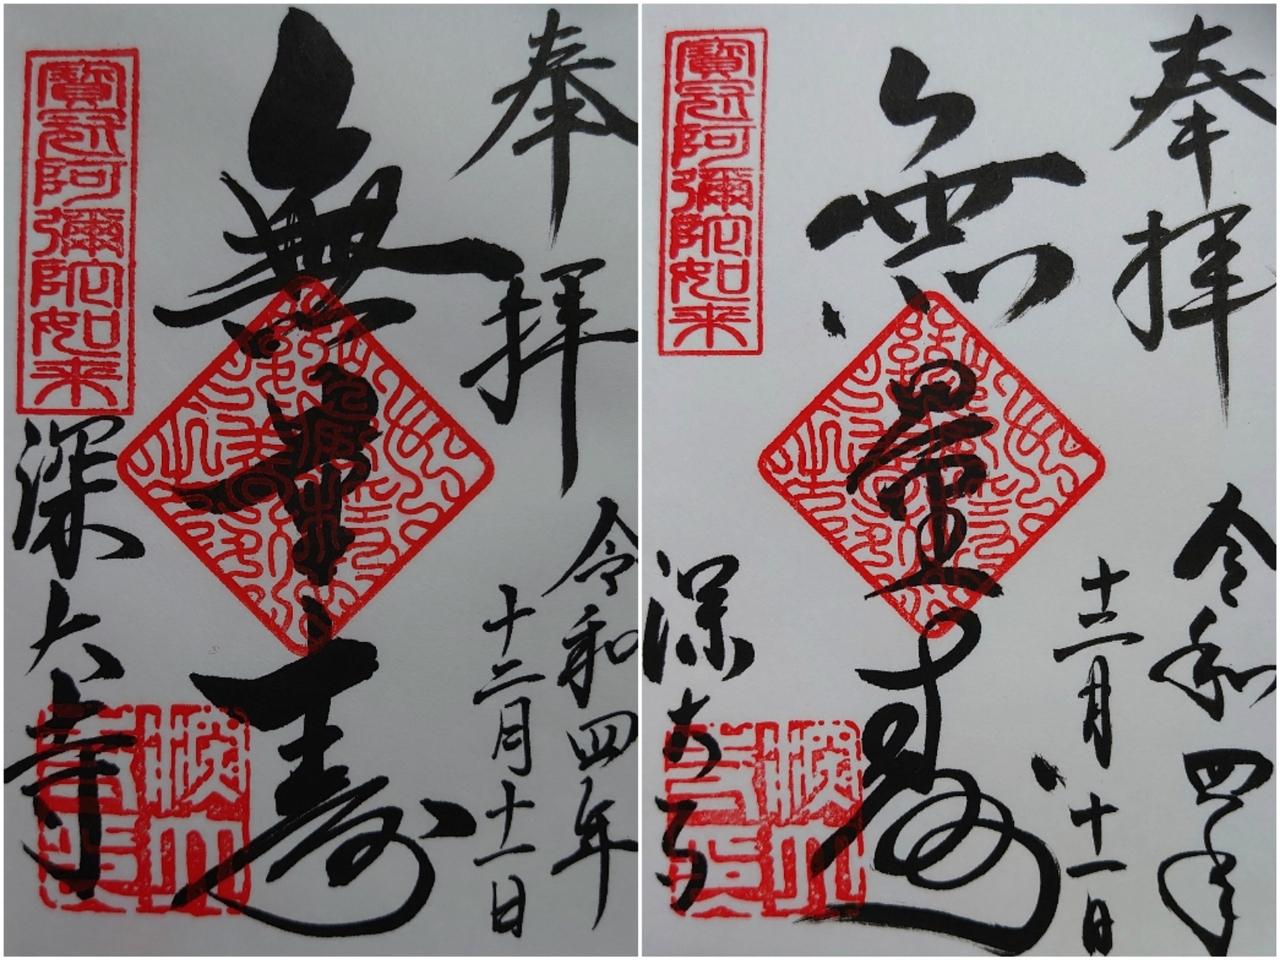 奉拝
令和四年
十二月十一日
無量寿
寶冠阿彌陀如来
深大寺
奉拝
令和四年
十二月十一日
無量寿
寶冠阿彌陀如来
深大寺